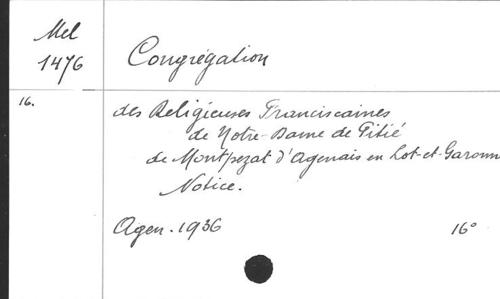 Mel
1476
Congrégation
16.
des Religieuses Franciscaines
de Notre-Dame de Pitié
de Montpezat d'Agenais en Lot-et-Garonn
Notice.
Agen. 1936
16°